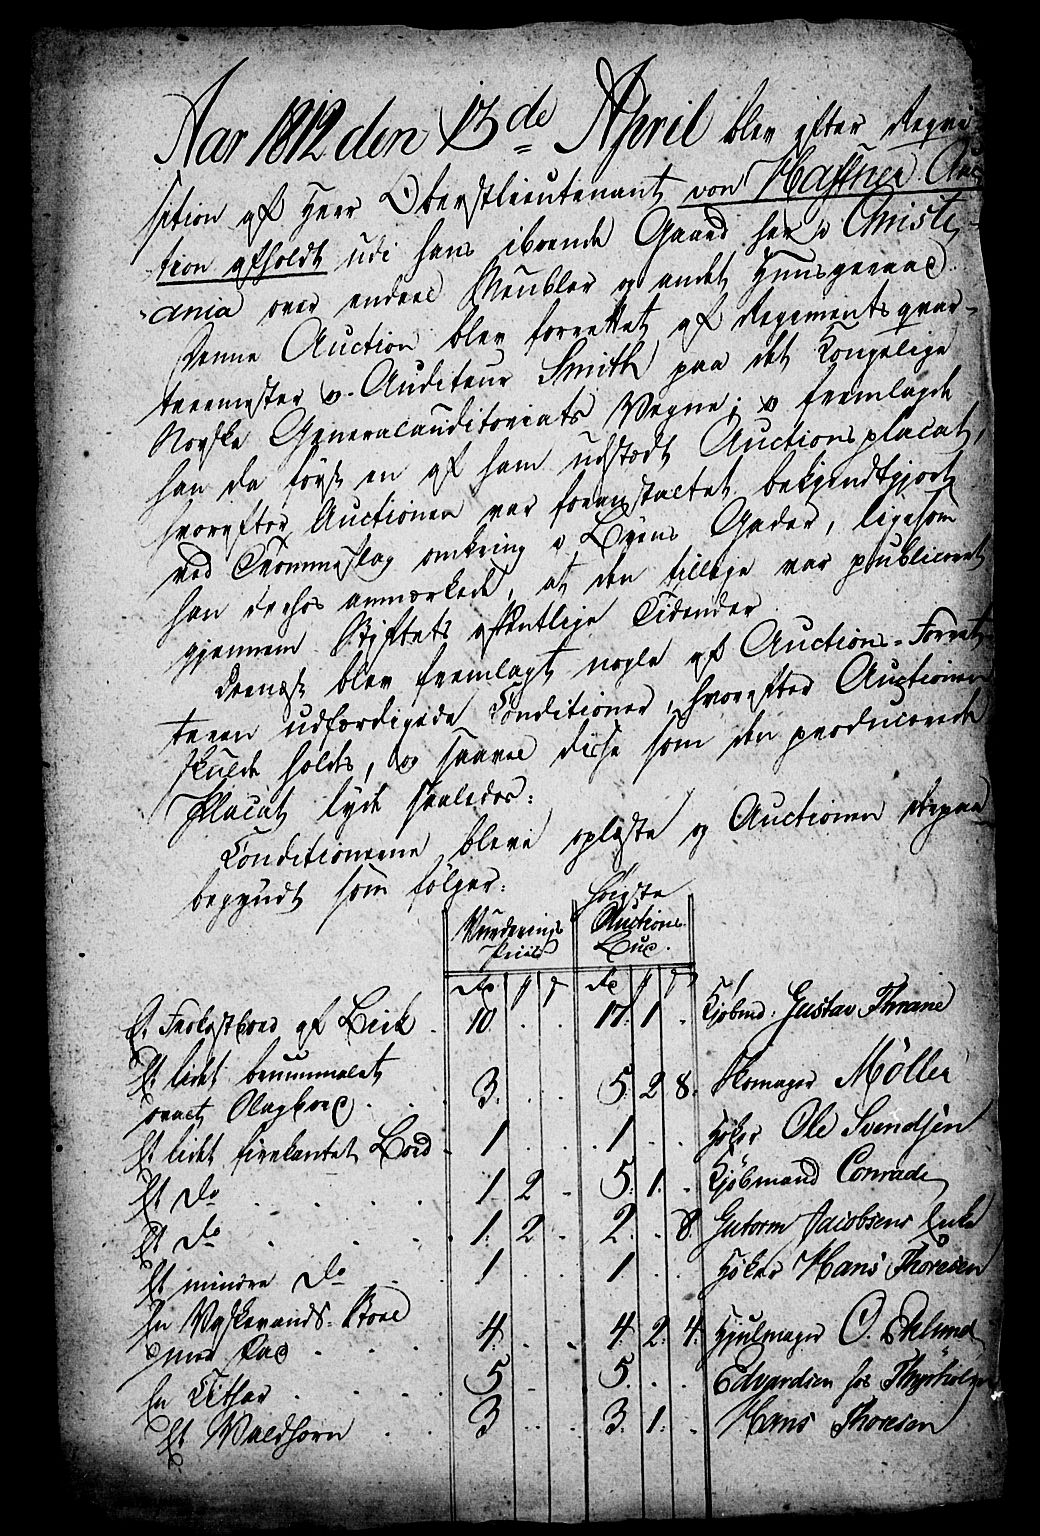 Aar 1812 den 13de April blev efter Reqvi-
sition af Herr Oberstlieutenant von Haffner Auc
tion afholdt udi hans iboende Gaard her i Christi-
ania over endeel Meubler og andet Huusgeraad.
Denne Auction blev forrettet af Regimentsqvar-
teermester og Auditeur Smith paa det Kongelige
Norske Generalauditoriats Vegne; og fremlagde
han da først en af ham udstædt Auctionsplacat,
hvorefter Auctionen var foranstaltet bekjendtgjort
ved Trommeslag omkring i Byens Gader, ligesom
han derhos anmærkede, at den tillige var publiceret
gjennem Stiftets offentlige Tidender.
Dernæst blev fremlagt nogle af Auctions-Forret-
teren udfærdigede Conditioner, hvorefter Auctionen
skulde holdes, og saavel disse som den producerede
Placat lyde saaledes:
Conditionerne bleve oplæste og Auctionen derpaa
begyndt som følger:
Vurderings Priis
Høieste Auctions Bud.
Rd ß Rd
Et Frokostbord af Birk . 10. . . 17. 1. . Kjøbmd. Gustav Thrane
Et lidet bruunmalet
ovalt Slagbord . . . 3. . . 5. 2 8. Skomager Möller
Et lidet firekantet Bord . 1 . . 1. . . Høker Ole Svendsen
Et do . . . . 1. 2 . 5. 1. . Kjøbmand Conradi
Et do . . . . 1. 2 . 2. . 8. Gutorm Jacobsens Enke
Et mindre do . . 1 . . 1. . . Høker Hans Thoresen
En Vaskevands-Boel
med Fad . . . 4. . . 4. 2. 4. Hjulmager O. Eklund
En Cithar . . . . 5 . . 5. . . Edvardsen hos
Et Valdhorn . . 3 . . 3. 1. . Hans Thoresen